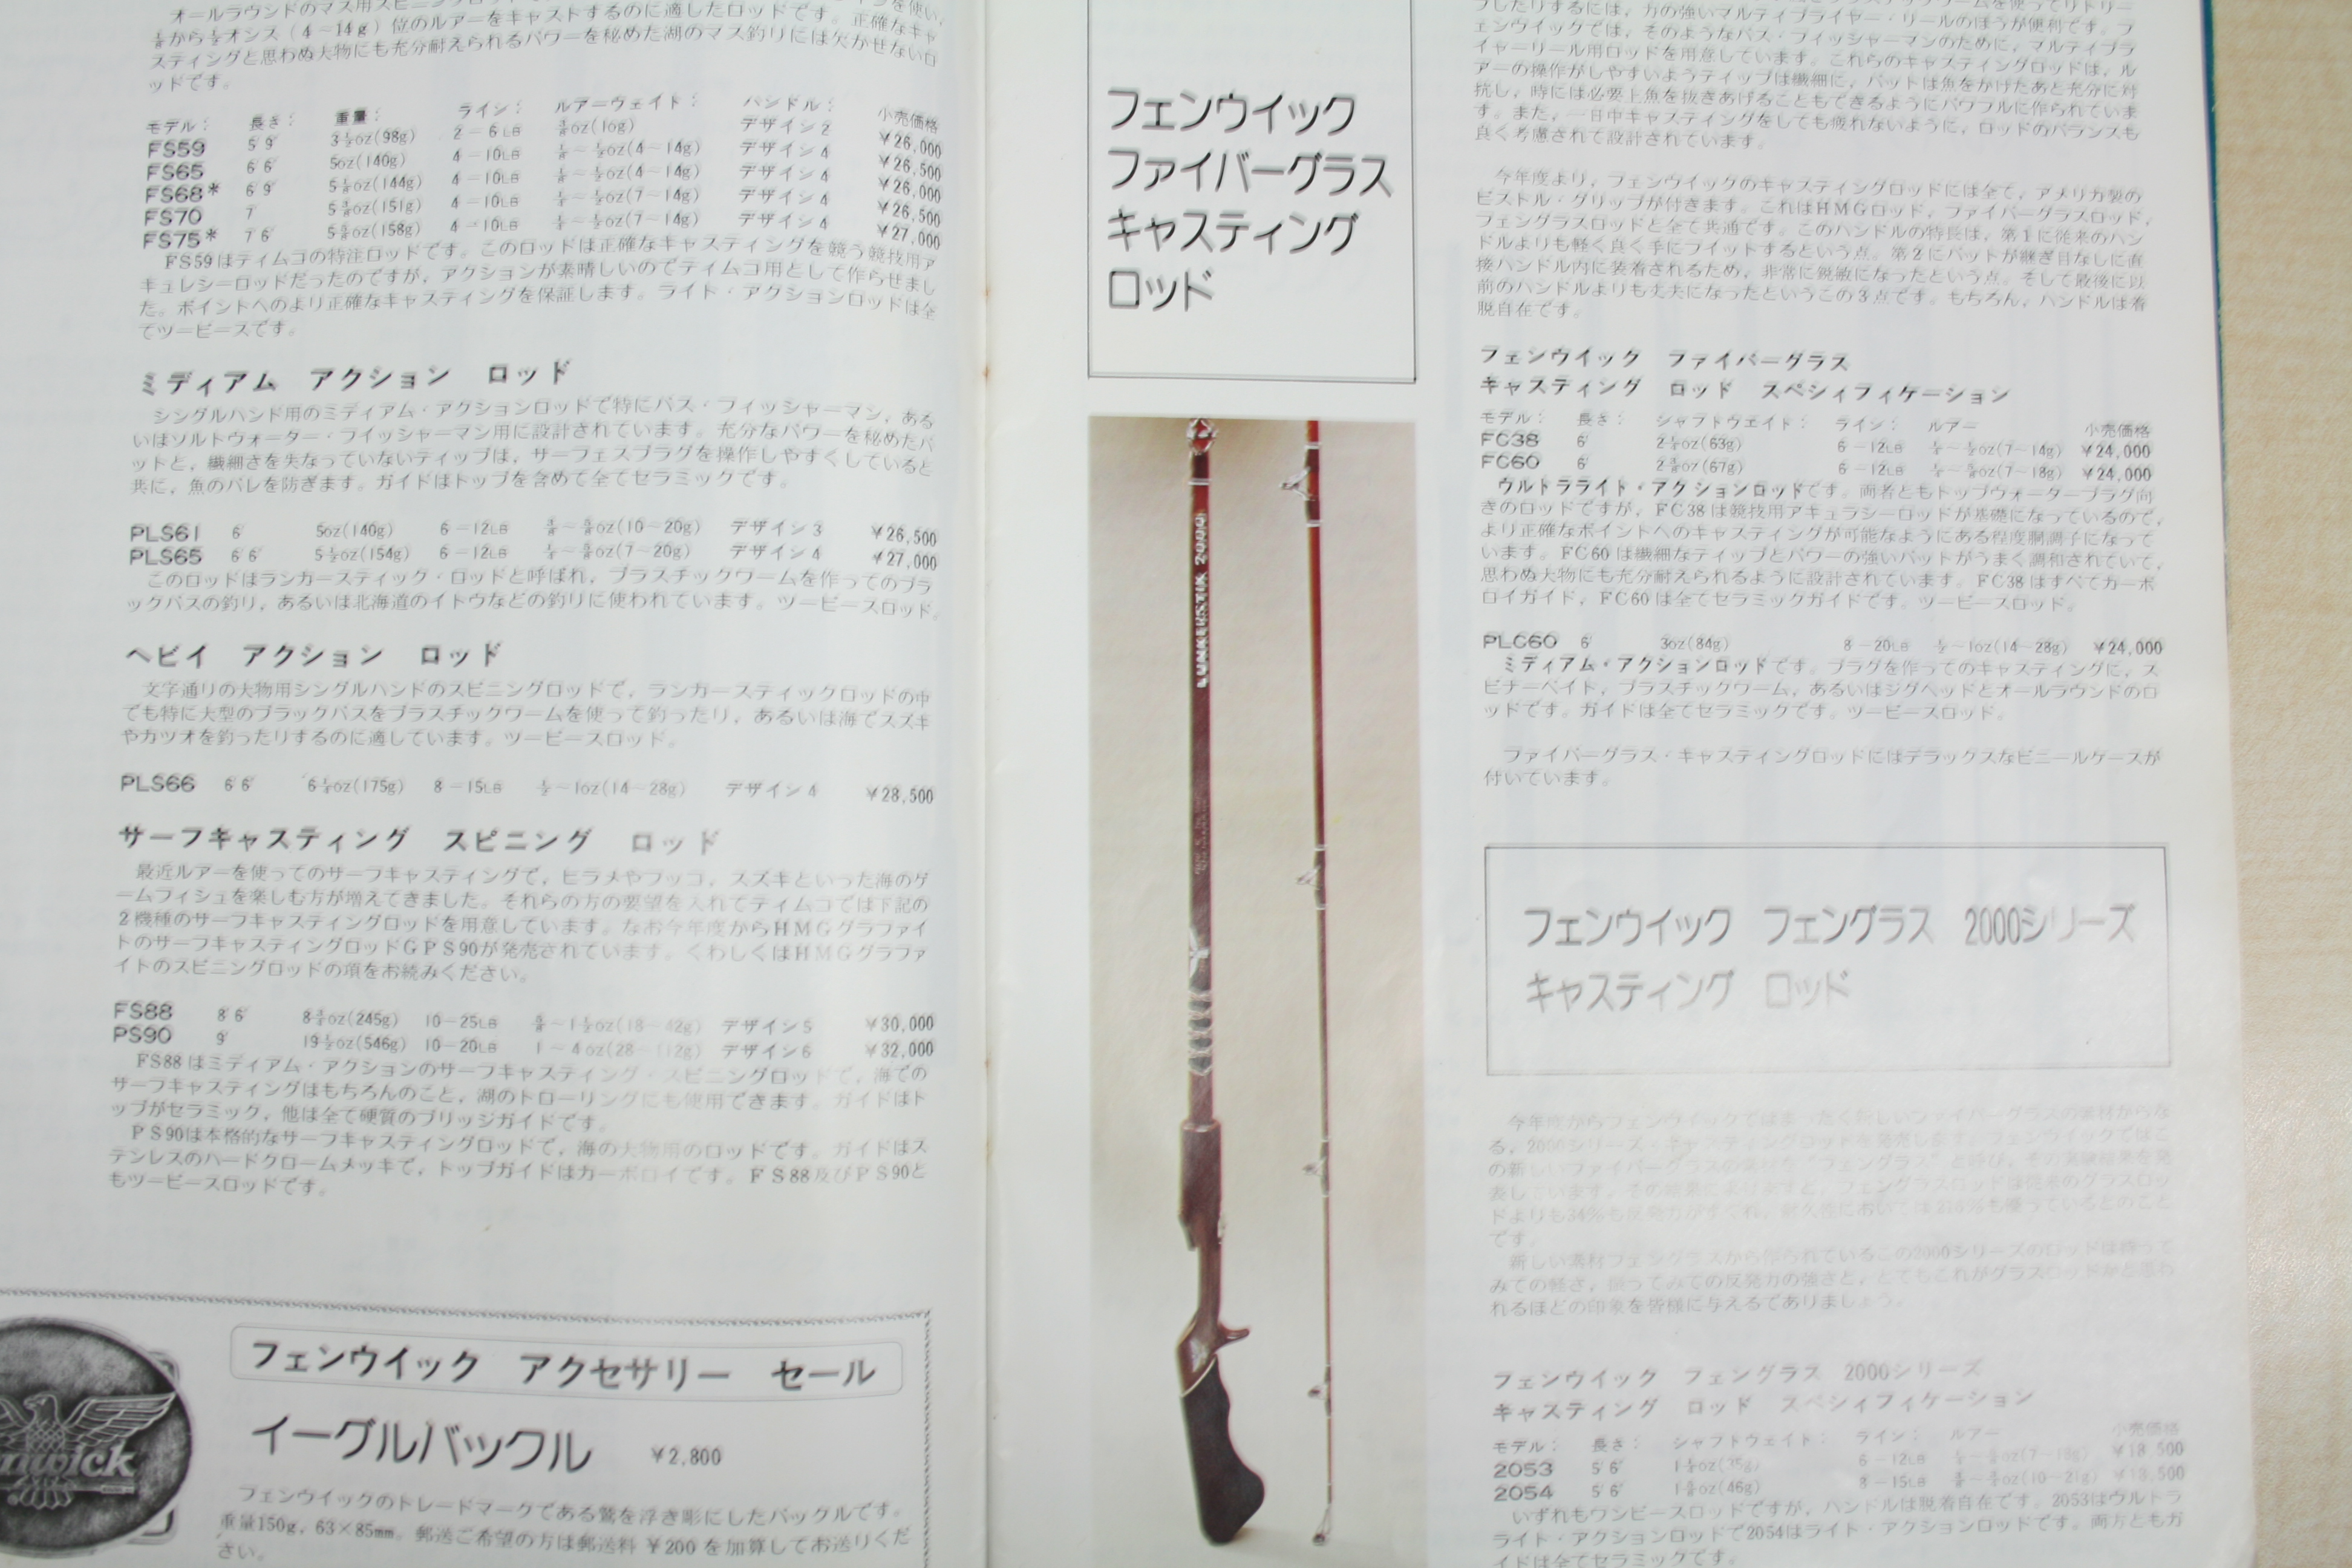 オールラウンドのマス用スピニングロッド
⅛から½オンス(4~14g)位のルアーをキャストするのに適したロッドです。正確なキャ
スティングと思わぬ大物にも充分耐えられるパワーを秘めた湖のマス釣りには欠かせないロ
ッドです。
モデル: 長さ: 重量: ライン: ルアーウェイト: ハンドル: 小売価格
FS59 5′9″ 3½oz(98g) 2-6LB ⅜oz(10g) デザイン2 ¥26,000
FS65 6′6″ 5oz(140g) 4-10LB ⅛~½oz(4~14g) デザイン4 ¥26,500
FS68* 6′9″ 5⅛oz(144g) 4-10LB ⅛~½oz(4~14g) デザイン4 ¥26,000
FS70 7′ 5⅜oz(151g) 4-10LB ¼~½oz(7~14g) デザイン4 ¥26,500
FS75* 7′6″ 5⅝oz(158g) 4-10LB ¼~½oz(7~14g) デザイン4 ¥27,000
FS59はティムコの特注ロッドです。このロッドは正確なキャスティングを競う競技用ア
キュレシーロッドだったのですが,アクションが素晴しいのでティムコ用として作らせまし
た。ポイントへのより正確なキャスティングを保証します。ライト・アクションロッドは全
てツーピースです。
ミディアム アクション ロッド
シングルハンド用のミディアム・アクションロッドで特にバス・フィッシャーマン,ある
いはソルトウォーター・フイッシャーマン用に設計されています。充分なパワーを秘めたバ
ットと,繊細さを失なっていないティップは,サーフェスプラグを操作しやすくしていると
共に,魚のバレを防ぎます。ガイドはトップを含めて全てセラミックです。
PLS61 6′ 5oz(140g) 6-12LB ⅜~⅝oz(10~20g) デザイン3 ¥26,500
PLS65 6′6″ 5½oz(154g) 6-12LB ¼~⅝oz(7~20g) デザイン4 ¥27,000
このロッドはランカースティック・ロッドと呼ばれ,プラスチックワームを作ってのブラ
ックバスの釣り,あるいは北海道のイトウなどの釣りに使われています。ツーピースロッド。
ヘビイ アクション ロッド
文字通りの大物用シングルハンドのスピニングロッドで,ランカースティックロッドの中
でも特に大型のブラックバスをプラスチックワームを使って釣ったり,あるいは海でスズキ
やカツオを釣ったりするのに適しています。ツーピースロッド。
PLS66 6′6″ 6¼oz(175g) 8-15LB ½~1oz(14~28g) デザイン4 ¥28,500
サーフキャスティング スピニング ロッド
最近ルアーを使ってのサーフキャスティングで,ヒラメやフッコ,スズキといった海のゲ
ームフィシュを楽しむ方が増えてきました。それらの方の要望を入れてティムコでは下記の
2機種のサーフキャスティングロッドを用意しています。なお今年度からHMGグラファイ
トのサーフキャスティングロッドGPS90が発売されています。くわしくはHMGグラファ
イトのスピニングロッドの項をお読みください。
FS88 8′6″ 8¾oz(245g) 10-25LB ⅝~1½oz(18~42g) デザイン5 ¥30,000
PS90 9′ 19½oz(546g) 10-20LB 1~4oz(28~112g) デザイン6 ¥32,000
FS88はミディアム・アクションのサーフキャスティング・スピニングロッドで,海での
サーフキャスティングはもちろんのこと,湖のトローリングにも使用できます。ガイドはト
ップがセラミック,他は全て硬質のブリッジガイドです。
PS90は本格的なサーフキャスティングロッドで,海の大物用のロッドです。ガイドはス
テンレスのハードクロームメッキで,トップガイドはカーボロイです。FS88及びPS90と
もツーピースロッドです。
フェンウイック アクセサリー セール
イーグルバックル ¥2,800
フェンウイックのトレードマークである鷲を浮き彫にしたバックルです。
重量150g,63×85mm。郵送ご希望の方は郵送料¥200を加算してお送りくだ
さい。
nwick
フェンウイック
ファイバーグラス
キャスティング
ロッド
LUNKERSTIK 2000
プしたりするには,力の強いマルティプライヤー・リールのほうが便利です。フ
ェンウイックでは,そのようなバス・フィッシャーマンのために,マルティプラ
イヤーリール用ロッドを用意しています。これらのキャスティングロッドは,ル
アーの操作がしやすいようティップは繊細に,バットは魚をかけたあと充分に対
抗し,時には必要上魚を抜きあげることもできるようにパワフルに作られていま
す。また,一日中キャスティングをしても疲れないように,ロッドのバランスも
良く考慮されて設計されています。
今年度より,フェンウイックのキャスティングロッドには全て,アメリカ製の
ピストル・グリップが付きます。これはHMGロッド,ファイバーグラスロッド,
フェングラスロッドと全て共通です。このハンドルの特長は,第1に従来のハン
ドルよりも軽く良く手にフイットするという点。第2にバットが継ぎ目なしに直
接ハンドル内に装着されるため,非常に鋭敏になったという点。そして最後に以
前のハンドルよりも丈夫になったというこの3点です。もちろん,ハンドルは着
脱自在です。
フェンウイック ファイバーグラス
キャスティング ロッド スペシィフィケーション
モデル: 長さ: シャフトウェイト: ライン: ルアー 小売価格
FC38 6′ 2¼oz(63g) 6-12LB ¼~½oz(7~14g) ¥24,000
FC60 6′ 2⅜oz(67g) 6-12LB ¼~⅝oz(7~18g) ¥24,000
ウルトラライト・アクションロッドです。両者ともトップウォータープラグ向
きのロッドですが,FC38は競技用アキュラシーロッドが基礎になっているので,
より正確なポイントへのキャスティングが可能なようにある程度胴調子になって
います。FC60は繊細なティップとパワーの強いバットがうまく調和されていて,
思わぬ大物にも充分耐えられるように設計されています。FC38はすべてカーボ
ロイガイド,FC60は全てセラミックガイドです。ツーピースロッド。
PLC60 6′ 3oz(84g) 8-20LB ½~1oz(14~28g) ¥24,000
ミディアム・アクションロッドです。プラグを作ってのキャスティングに,ス
ピナーベイト,プラスチックワーム,あるいはジグヘッドとオールラウンドのロ
ッドです。ガイドは全てセラミックです。ツーピースロッド。
ファイバーグラス・キャスティングロッドにはデラックスなビニールケースが
付いています。
フェンウイック フェングラス 2000シリーズ
キャスティング ロッド
今年度からフェンウイックではまったく新しいファイバーグラスの素材からな
る,2000シリーズ・キャスティングロッドを発売しました。フェンウイックではこ
の新しいファイバーグラスの素材を“フェングラス”と呼び,その実験結果を発
表しています。その結果によりますと,フェングラスロッドは従来のグラスロッ
ドよりも34%も反発力がすぐれ,耐久性においては216%も優っているとのこと
です。
新しい素材フェングラスから作られているこの2000シリーズのロッドは持って
みての軽さ,振ってみての反発力の強さと,とてもこれがグラスロッドかと思わ
れるほどの印象を皆様に与えるでありましょう。
フェンウイック フェングラス 2000シリーズ
キャスティング ロッド スペシィフィケーション
モデル: 長さ: シャフトウェイト: ライン: ルアー 小売価格
2053 5′6″ 1¼oz(35g) 6-12LB ¼~⅝oz(7~18g) ¥18,500
2054 5′6″ 1⅝oz(46g) 8-15LB ⅜~¾oz(10~21g) ¥18,500
いずれもワンピースロッドですが,ハンドルは脱着自在です。2053はウルトラ
ライト・アクションロッドで2054はライト・アクションロッドです。両方ともガ
イドは全てセラミックです。